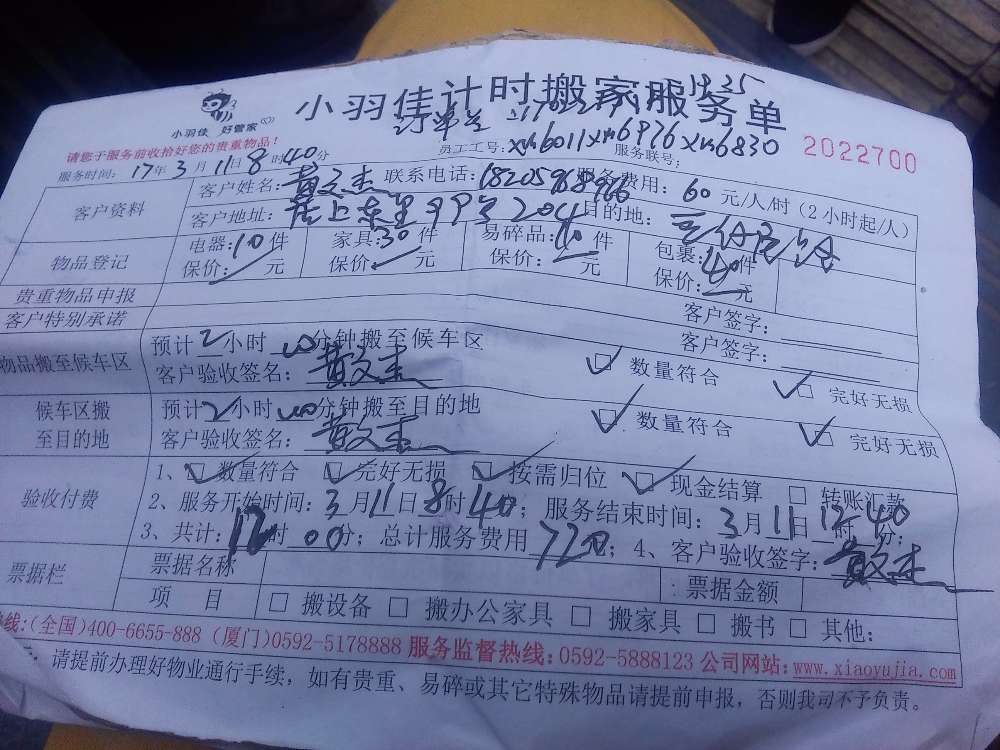 小羽佳计时搬家服务单
小羽佳 好管家
订单号
请您于服务前收拾好您的贵重物品！
员工工号：xm6011 xm6976 xm6830 服务联号：
2022700
服务时间：17年3月11日8时40分
客户资料 客户姓名：黄文杰 联系电话：18205968966 服务费用：60元/人/时（2小时起/人）
客户地址：204 目的地：
物品登记 电器：10件 家具：30件 易碎品：10件 包裹：40件
保价： 元 保价： 元 保价： 元 保价： 元
贵重物品申报 客户签字：
客户特别承诺 客户签字：
物品搬至候车区 预计2小时00分钟搬至候车区
客户验收签名：黄文杰 数量符合 完好无损
候车区搬至目的地 预计2小时00分钟搬至目的地
客户验收签名：黄文杰 数量符合 完好无损
验收付费 1、数量符合 完好无损 按需归位 现金结算 转账汇款
2、服务开始时间：3月11日8时40；服务结束时间：3月11日12时40分；
3、共计：12时00分；总计服务费用720；4、客户验收签字：黄文杰
票据栏 票据名称 票据金额
项 目 搬设备 搬办公家具 搬家具 搬书 其他：
热线：(全国)400-6655-888 (厦门)0592-5178888 服务监督热线：0592-5888123 公司网站：www.xiaoyujia.com
请提前办理好物业通行手续，如有贵重、易碎或其它特殊物品请提前申报，否则我司不予负责。